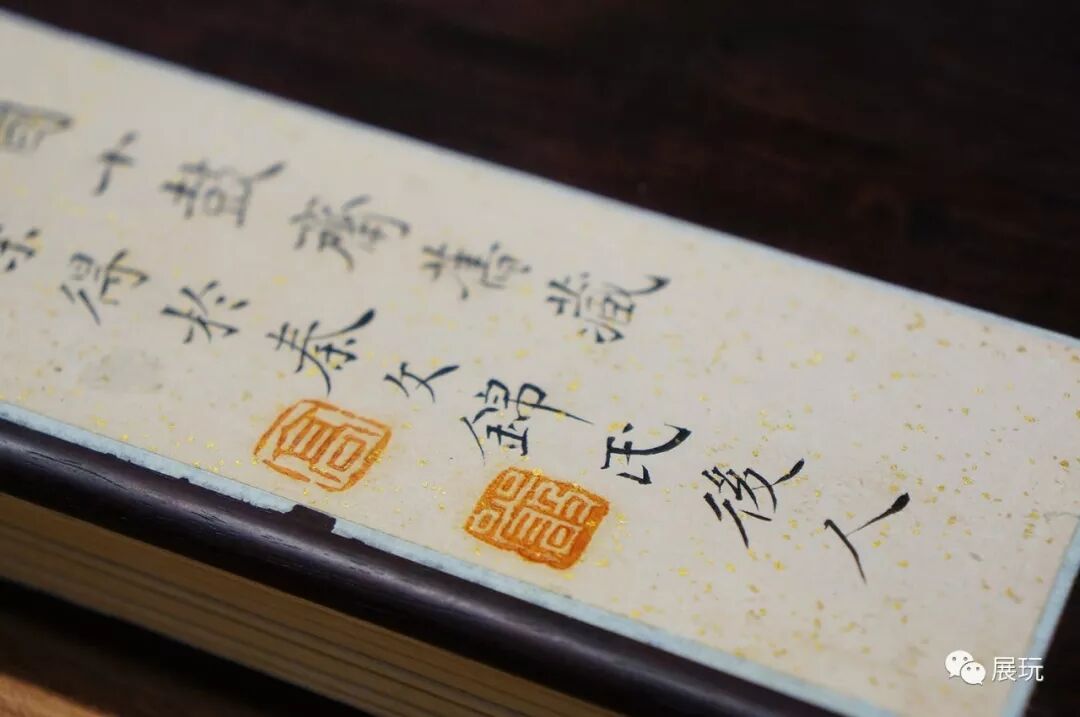 十鼓齋舊藏
得於秦文錦氏後人
展玩